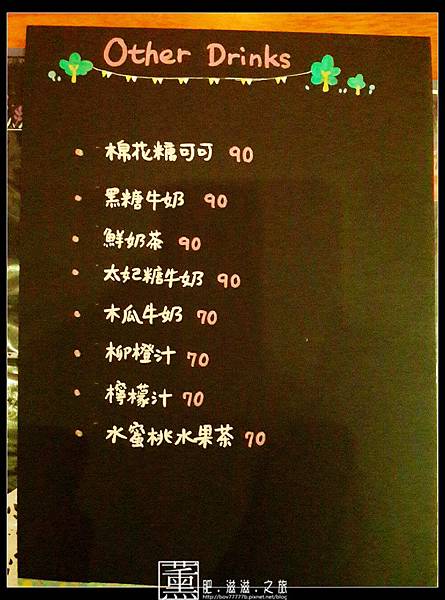 Other Drinks
• 棉花糖可可 90
• 黑糖牛奶 90
• 鮮奶茶 90
• 太妃糖牛奶 90
• 木瓜牛奶 70
• 柳橙汁 70
• 檸檬汁 70
• 水蜜桃水果茶 70
薰 肥.滋滋.之旅
http://boy77777b.pixnet.net/blog